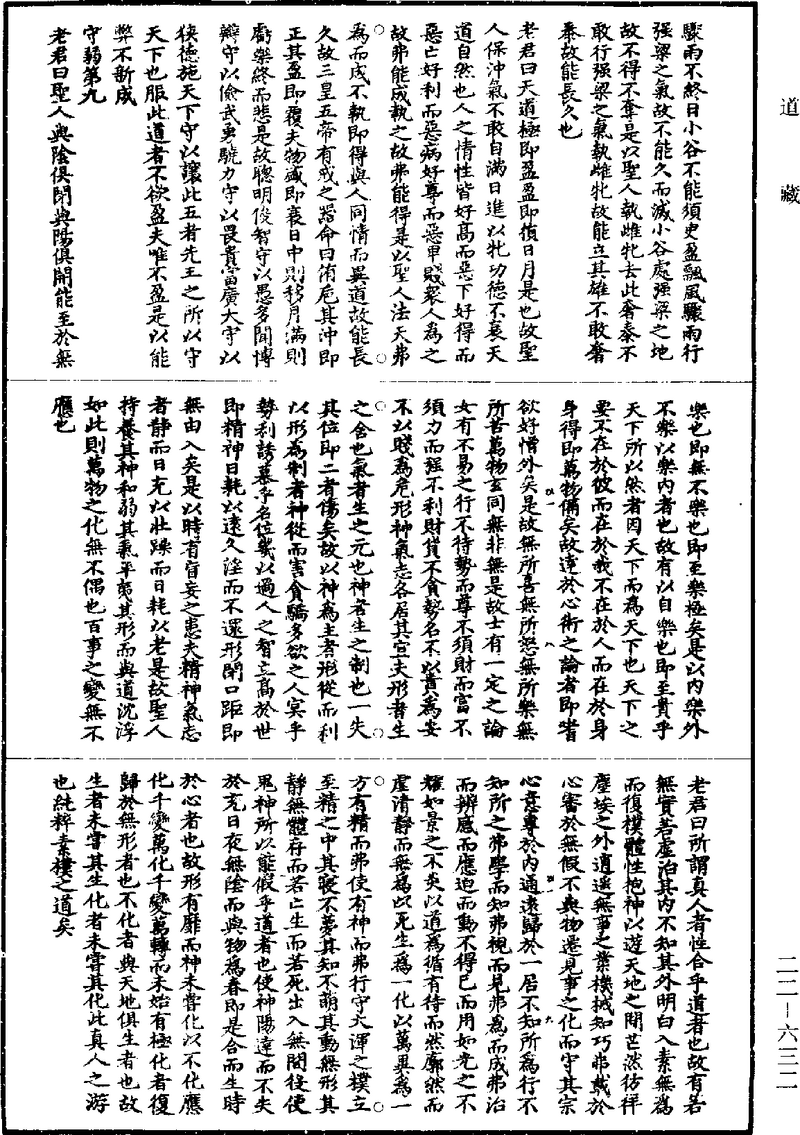 道藏
驟雨不終日小谷不能須臾盈飄風驟雨行
强梁之氣故不能久而滅小谷處强梁之地
故不得不奪是以聖人執雌牝去此奢泰不
敢行强梁之氣執雌牝故能立其雄不敢奢
泰故能長久也
老君曰天道極即盈盈即損日月是也故聖
人保沖氣不敢自滿日進以牝功德不衰天
道自然也人之情性皆好高而惡下好得而
惡亡好利而惡病好尊而惡卑賤衆人為之
故弗能成執之故弗能得是以聖人法天弗
為而成不執即得與人同情而異道故能長
久故三皇五帝有戒之器命曰侑卮其沖即
正其盈即覆夫物盛即衰日中則移月滿則
虧樂終而悲是故聰明俊智守以愚多聞博
辯守以儉武勇驍力守以畏貴富廣大守以
狹德施天下守以讓此五者先王之所以守
天下也服此道者不欲盈夫唯不盈是以能
弊不新成
守弱第九
老君曰聖人與陰俱閉與陽俱開能至於無
樂也即無不樂也即至樂極矣是以内樂外
不樂以樂内者也故有以自樂也即至貴乎
天下所以然者因天下而為天下也天下之
要不在於彼而在於我不在於人而在於身
身得即萬物備矣故達於心術之論者即嗜
欲好憎外矣是故無所喜無所怒無所樂無
所苦萬物玄同無非無是故士有一定之論
女有不易之行不待勢而尊不須財而富不
須力而强不利財貨不貪勢名不以貴為安
不以賤為危形神氣志各居其宜夫形者生
之舍也氣者生之元也神者生之制也一失
其位即二者傷矣故以神為主者形從而利
以形為制者神從而害貪驕多欲之人冥乎
勢利誘慕乎名位幾以過人之智立高於世
即精神日耗以遠久淫而不還形閉口距即
無由入矣是以時有盲妄之患夫精神氣志
者靜而日充以壯躁而日耗以老是故聖人
持養其神和弱其氣平夷其形而與道沈浮
如此則萬物之化無不偶也百事之變無不
應也
老君曰所謂真人者性合乎道者也故有若
無實若虛治其内不知其外明白入素無為
而復樸體性抱神以遊天地之間芒然彷徉
塵埃之外逍遥無事之業機械知巧弗載於
心審於無假不與物遷見事之化而守其宗
心意專於内通遠歸於一居不知所為行不
知所之弗學而知弗視而見弗為而成弗治
而辨感而應迫而動不得已而用如光之不
耀如景之不炎以道為循有待而然廓然而
虛清靜而無為以死生為一化以萬異為一
方有精而弗使有神而弗行守大渾之樸立
至精之中其寢不夢其知不萌其動無形其
靜無體存而若亡生而若死出入無間役使
鬼神所以能假乎道者也使神陽達而不失
於充日夜無陰而與物為春即是合而生時
於心者也故形有靡而神未嘗化以不化應
化千變萬化千變萬轉而未始有極化者復
歸於無形者也不化者與天地俱生者也故
生者未嘗其生化者未嘗其化此真人之游
也純粹素樸之道矣
二二－六三二